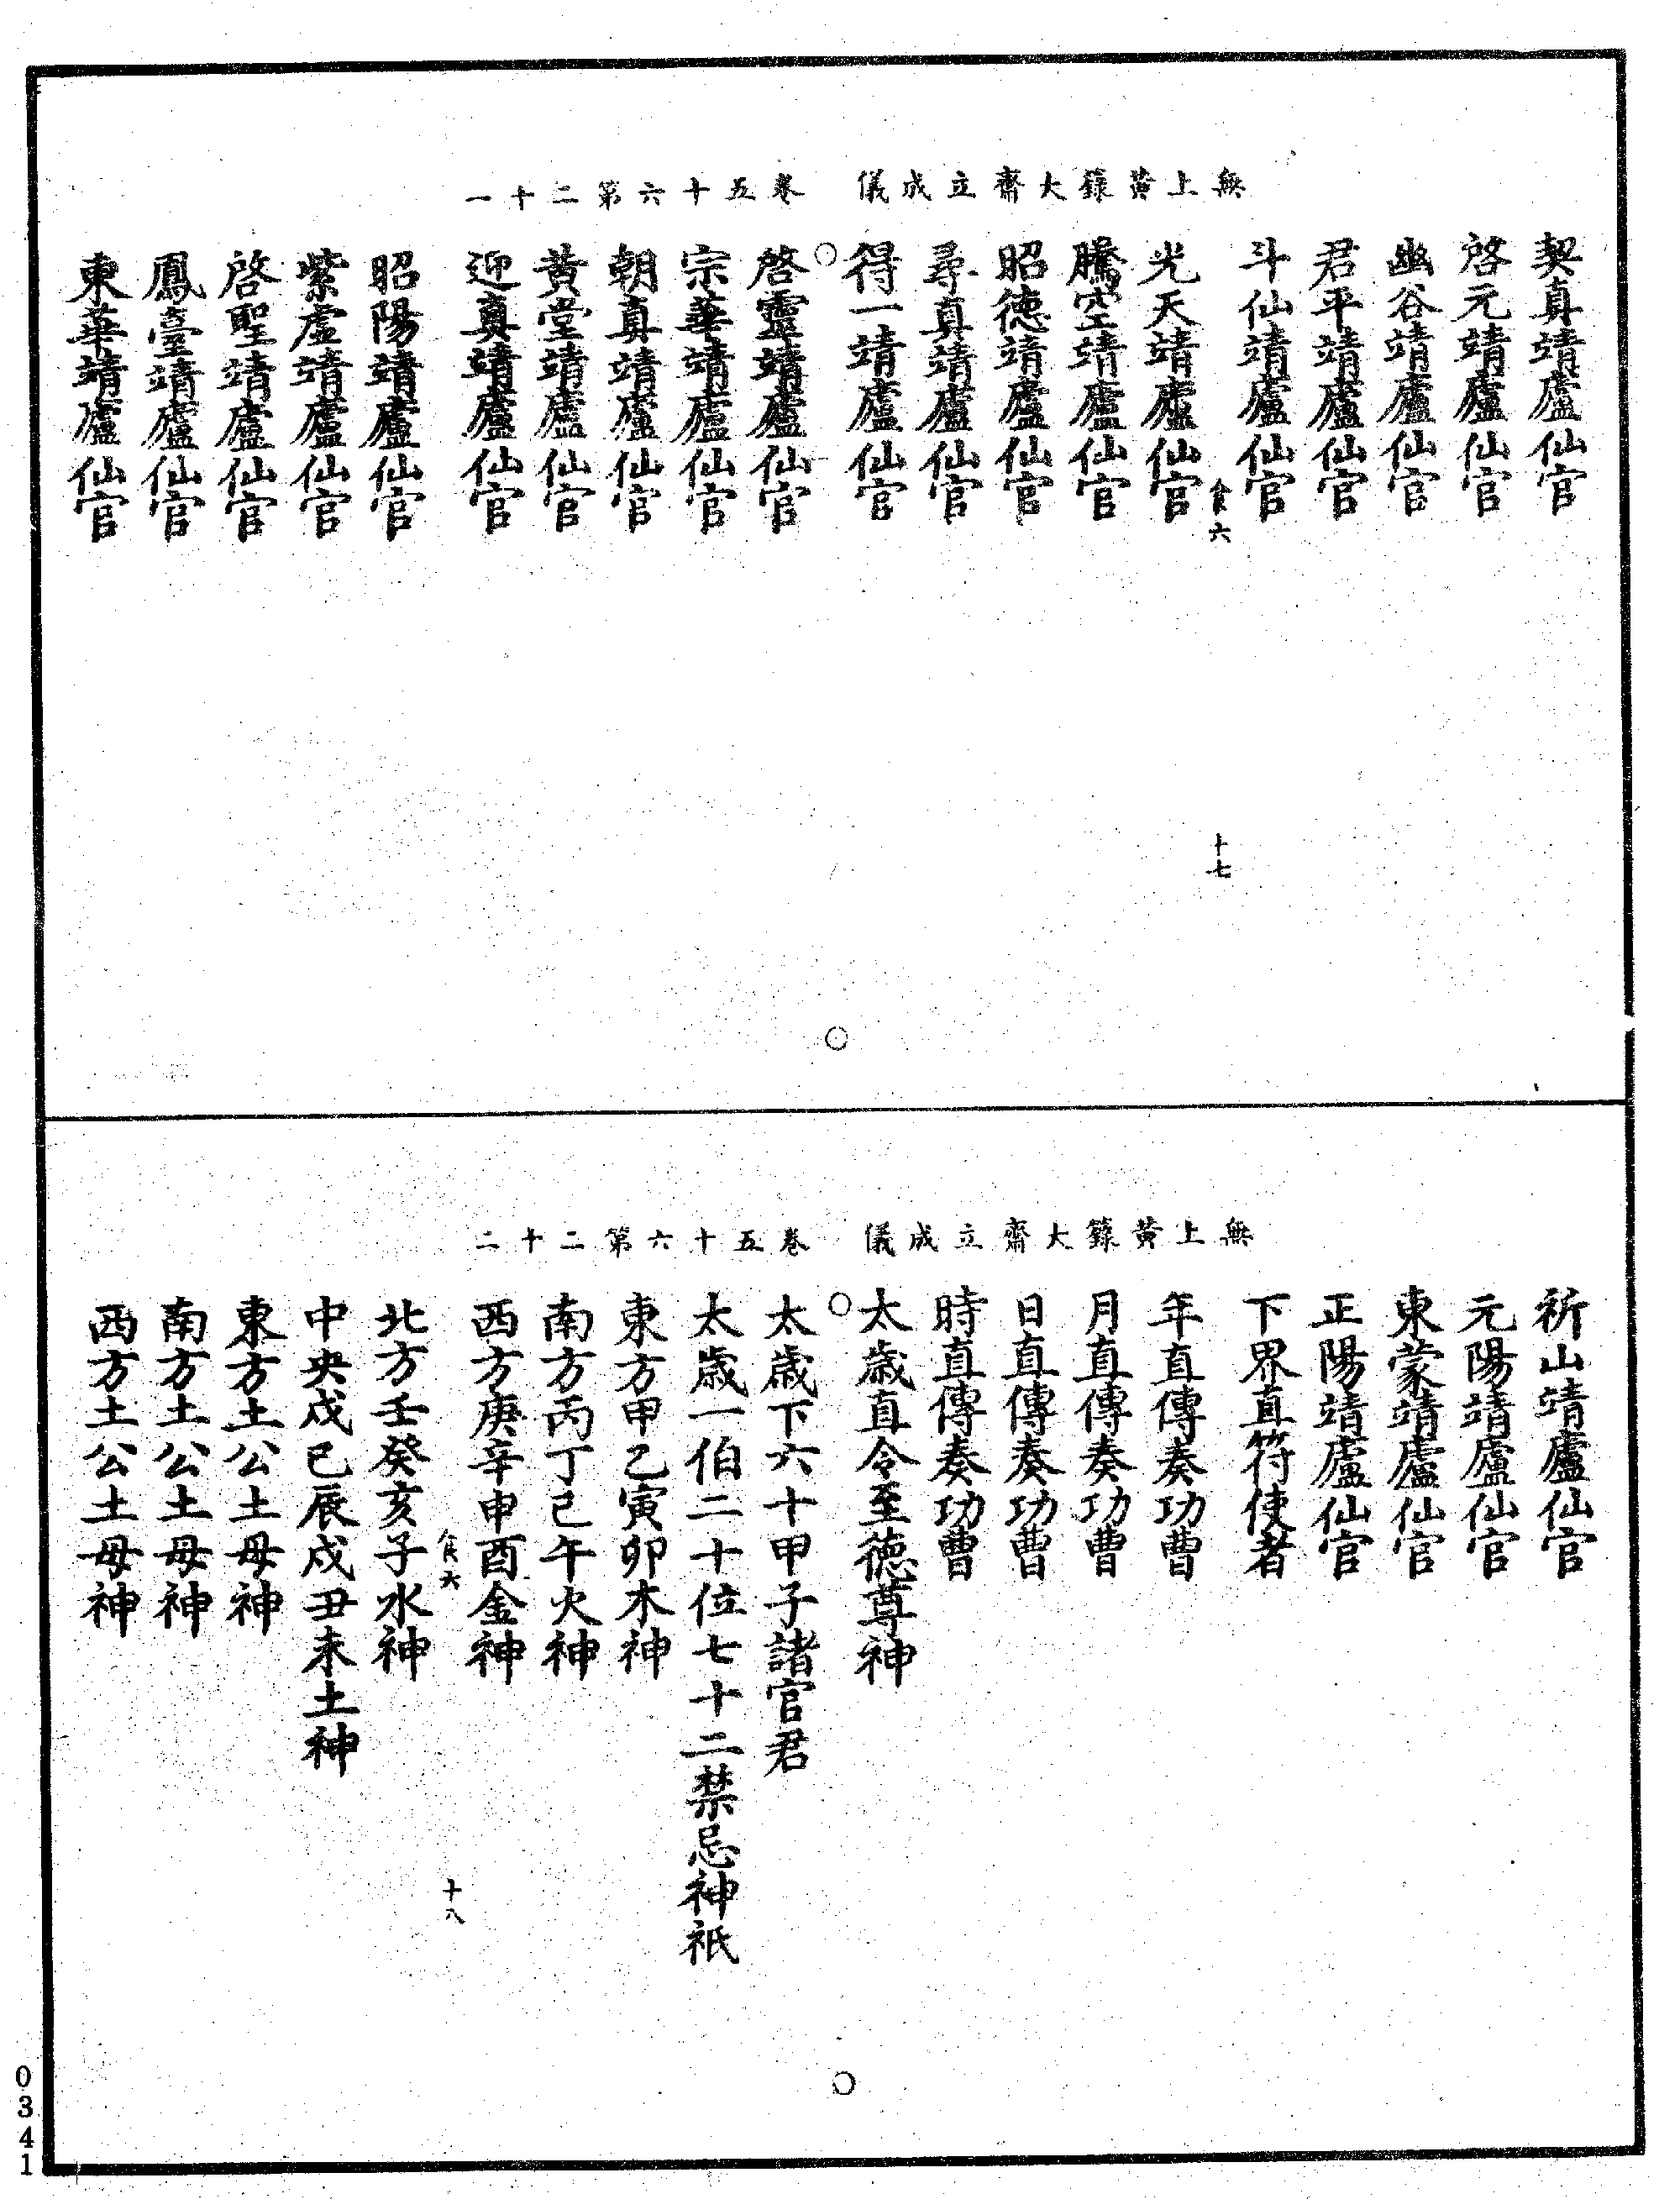 無上黃籙大齋立成儀　卷五十六第二十一
契真靖廬仙官
啓元靖廬仙官
幽谷靖廬仙官
君平靖廬仙官
斗仙靖廬仙官
食六　十七
光天靖廬仙官
騰空靖廬仙官
昭德靖廬仙官
尋真靖廬仙官
得一靖廬仙官
啓靈靖廬仙官
宗華靖廬仙官
朝真靖廬仙官
黃堂靖廬仙官
迎真靖廬仙官
昭陽靖廬仙官
紫虛靖廬仙官
啓聖靖廬仙官
鳳臺靖廬仙官
東華靖廬仙官
無上黃籙大齋立成儀　卷五十六第二十二
祈山靖廬仙官
元陽靖廬仙官
東蒙靖廬仙官
正陽靖廬仙官
下界直符使者
年直傳奏功曹
月直傳奏功曹
日直傳奏功曹
時直傳奏功曹
太歲直令至德尊神
太歲下六十甲子諸官君
太歲一伯二十位七十二禁忌神祇
東方甲乙寅卯木神
南方丙丁巳午火神
西方庚辛申酉金神
食六　十八
北方壬癸亥子水神
中央戊己辰戌丑未土神
東方土公土母神
南方土公土母神
西方土公土母神
0341